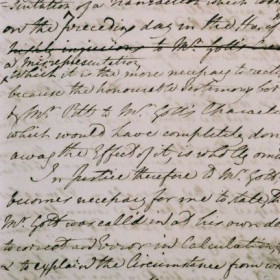 tation of a Transaction which took
on the preceding day in the House of
highly injurious to Mr. Gott's
a misrepresentation,
which it is the more necessary to
because the honourable testimony bor
by Mr. Pitt to Mr. Gott's Charac
which would have completely don
away the Effect of it, is wholly om
In Justice therefore to Mr. Gott
becomes necessary for me to state, th
Mr. Gott was called in at his own de
to correct an Error in Calculation
& to explain the Circumstance from